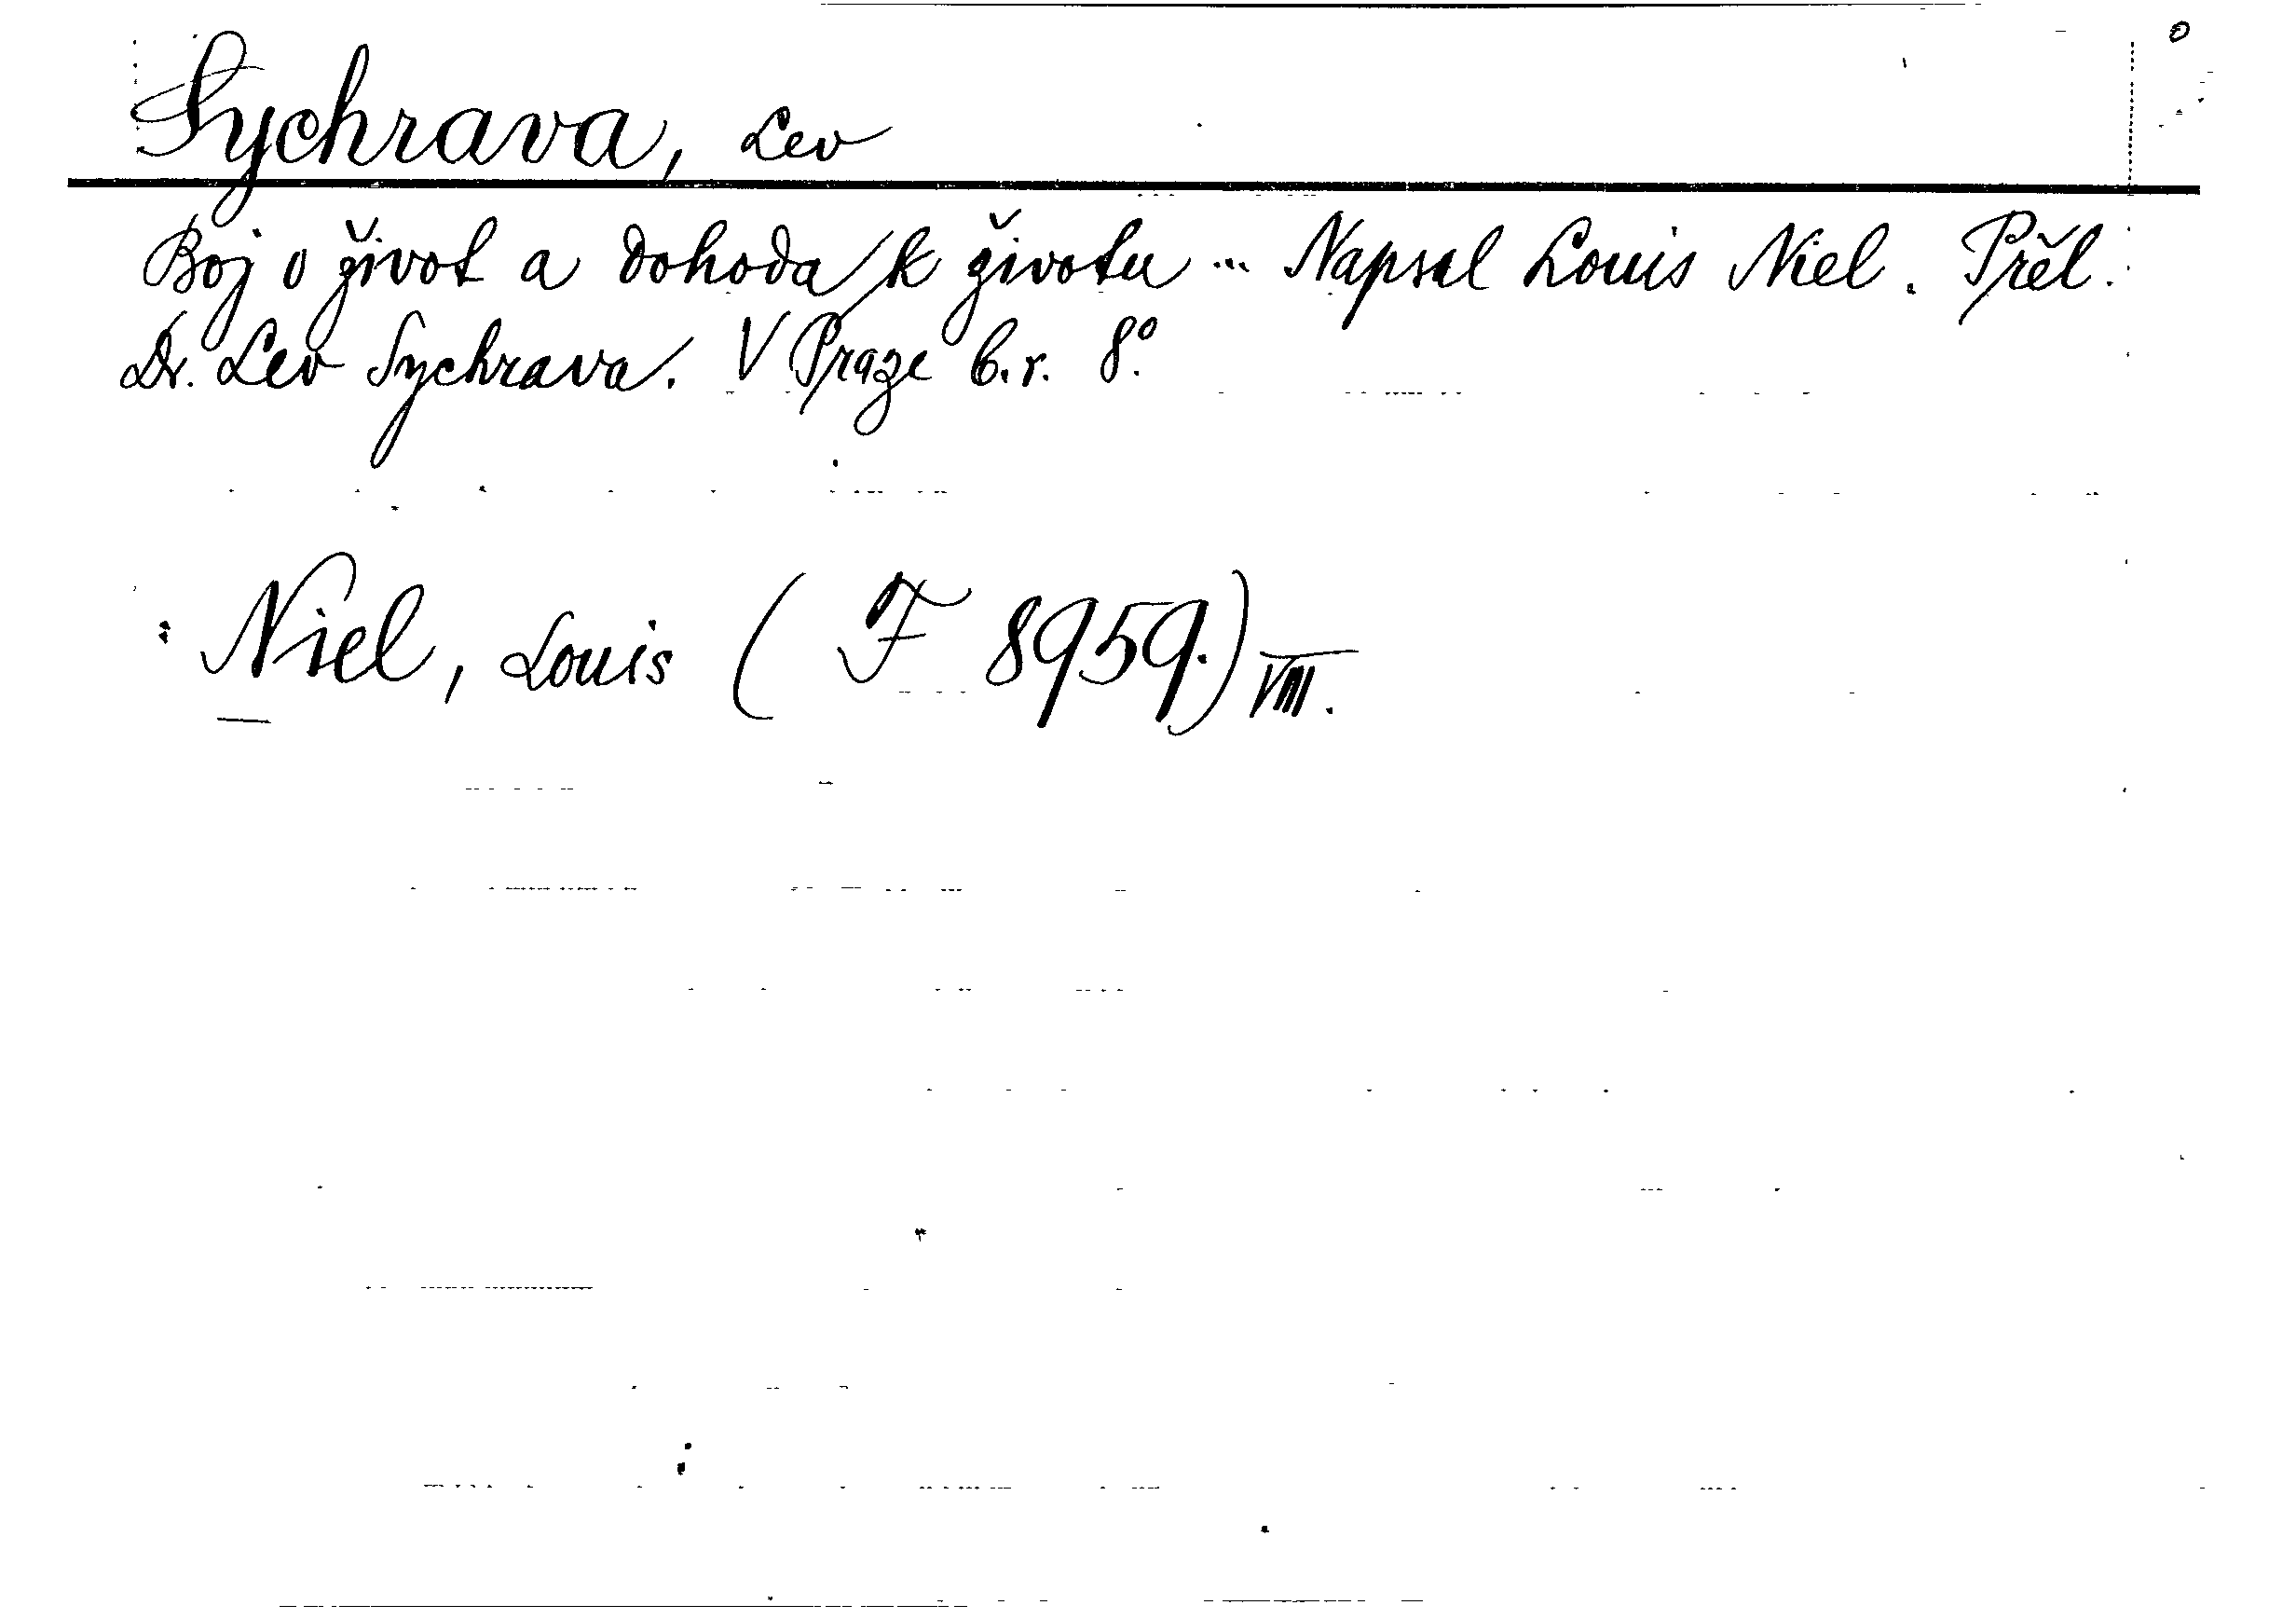 Sychrava, Lev
Boj o život a dohoda k životu ... Napsal Louis Niel. Přel.
Dr. Lev Sychrava. V Praze b.r. 8°.
: Niel, Louis ( F 8959.) VIII.